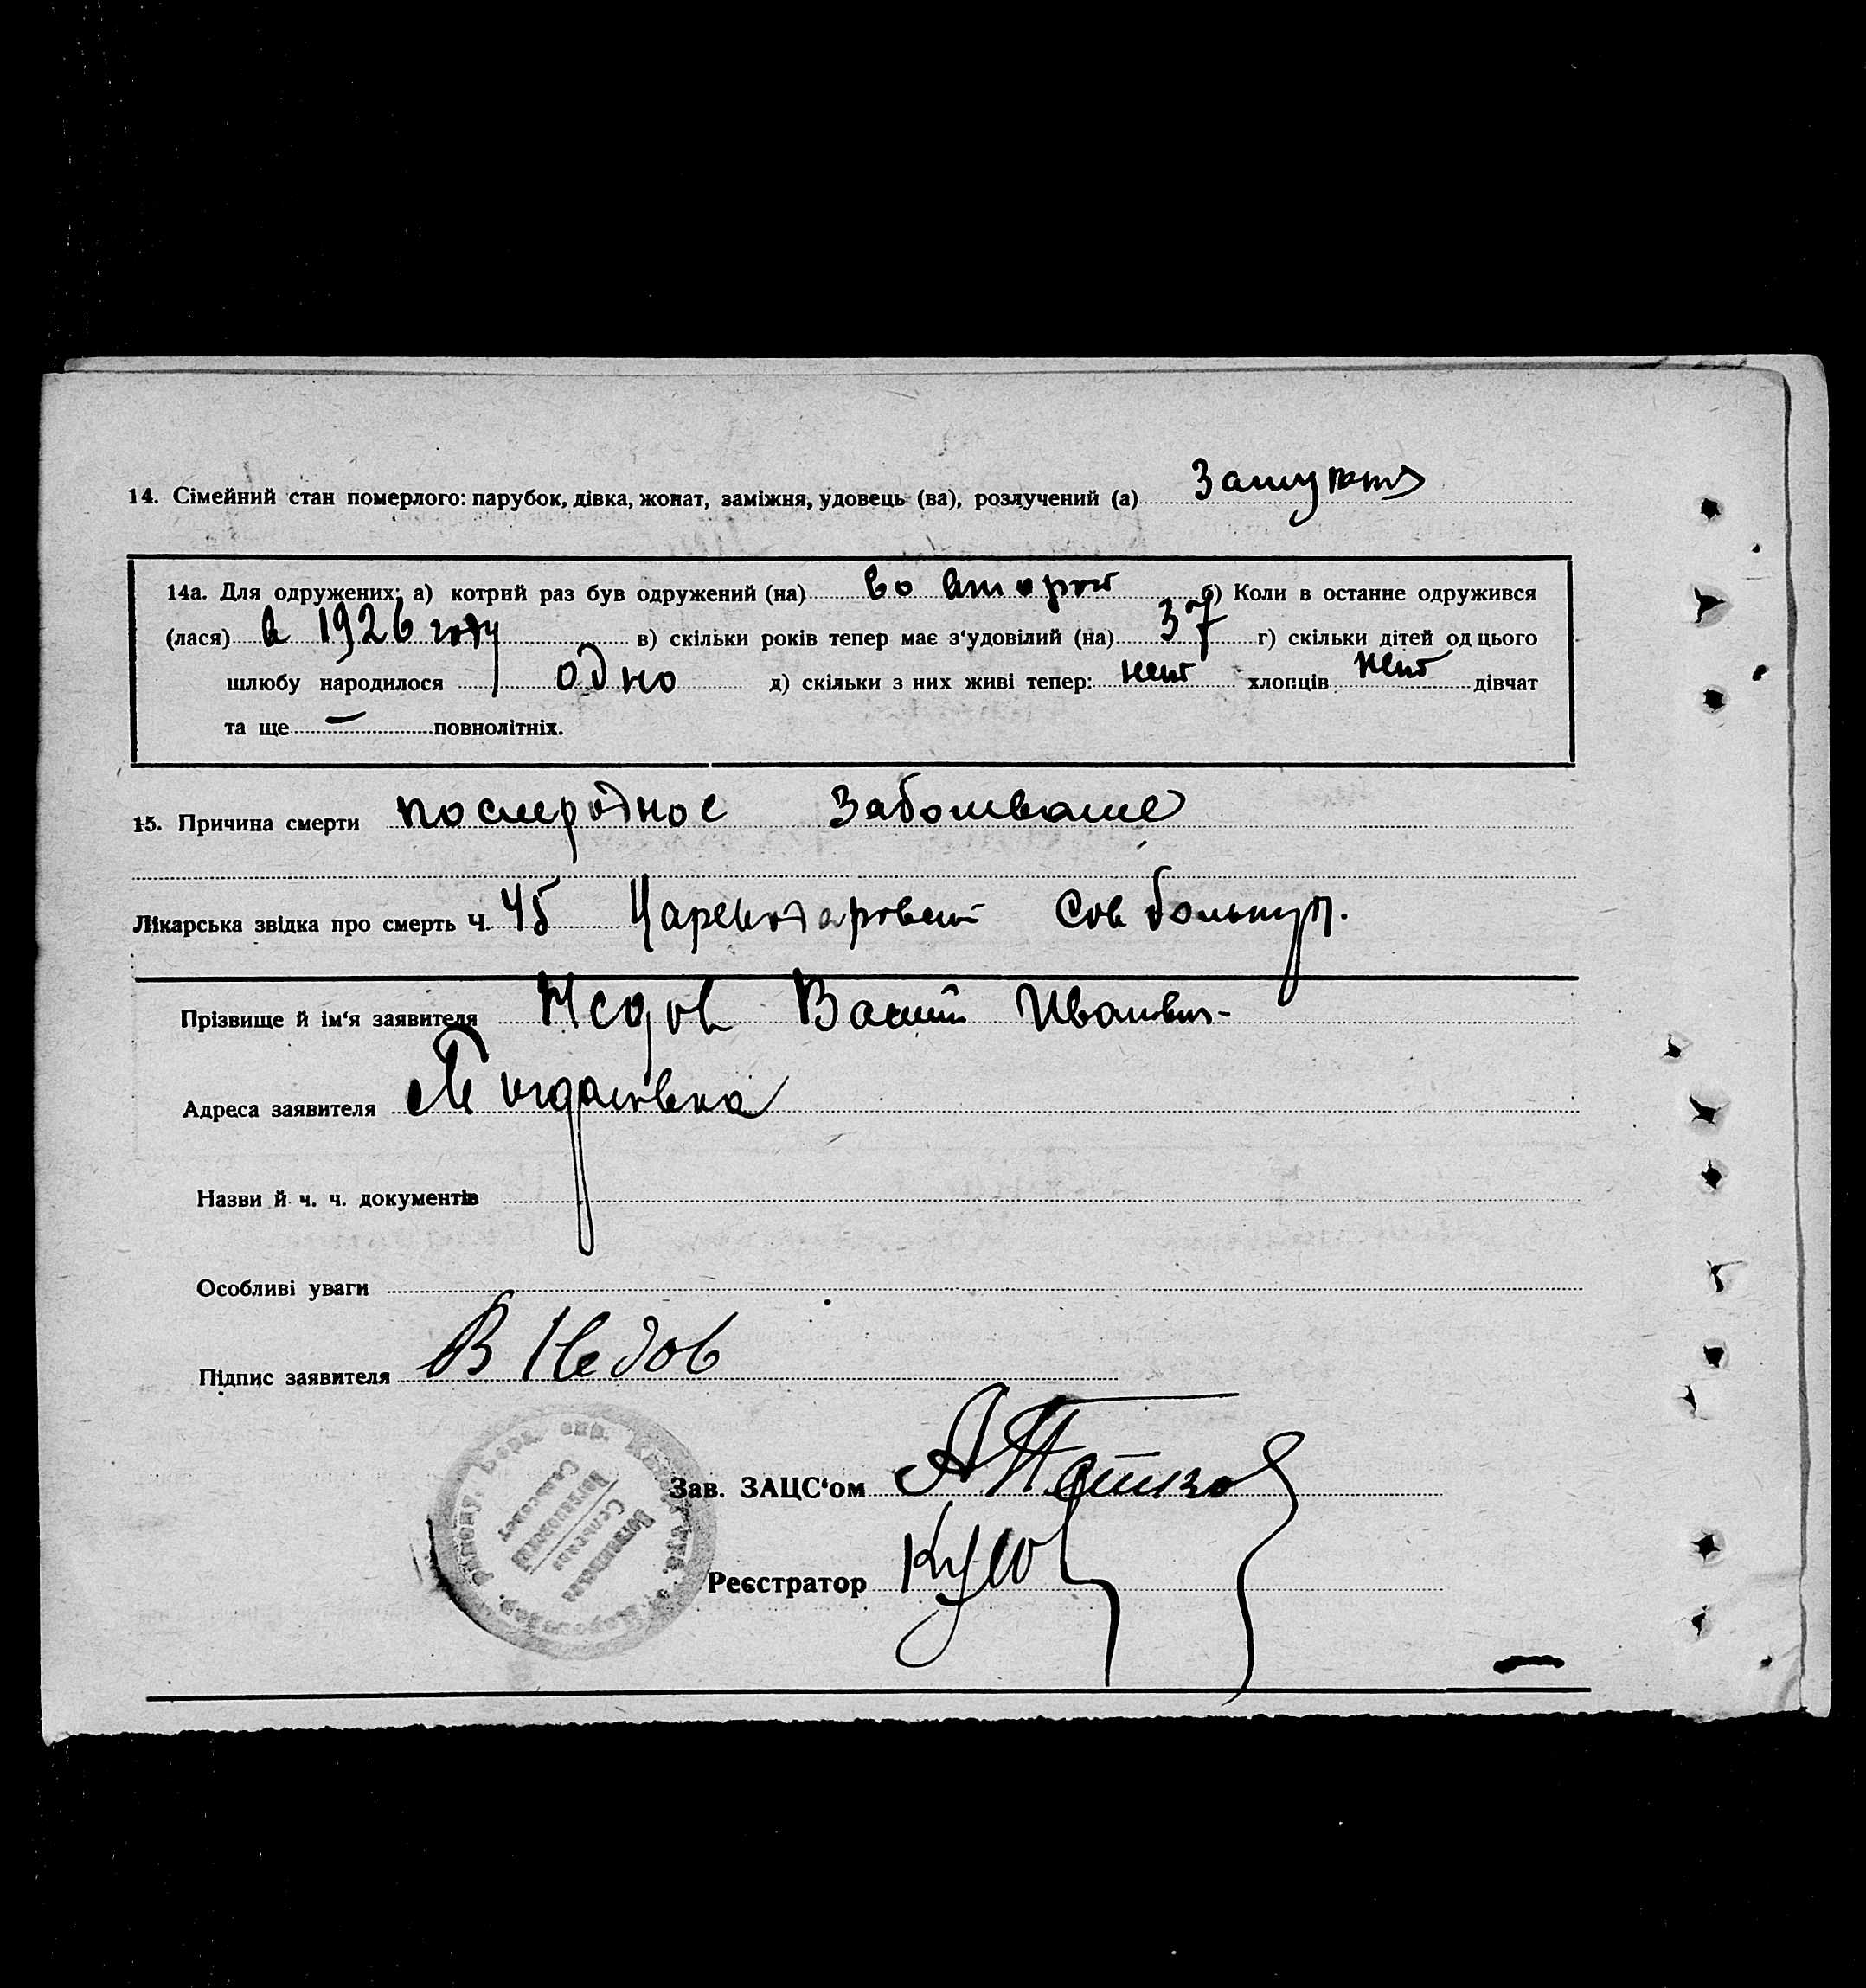 14. Сімейний стан померлого: парубок, дівка, жонат, заміжня, удовець (ва), розлучений (а) Замужня
14а. Для одружених: а) котрий раз був одружений (на) во второй б) Коли в останне одружився
(лася) в 1926 году в) скільки років тепер має з‘удовілий (на) 37 г) скільки дітей од цього
шлюбу народилося одно д) скільки з них живі тепер: нет хлопців нет дівчат
та ще — повнолітніх.
15. Причина смерти послеродное Заболевание
Лікарська звідка про смерть Ч. 45 Сов больниц.
Прізвище й ім‘я заявителя Недов Василий Иванович
Адреса заявителя
Назви й ч. ч. документів
Особливі уваги
Підпис заявителя В Недов
Зав. ЗАЦС‘ом
Реєстратор